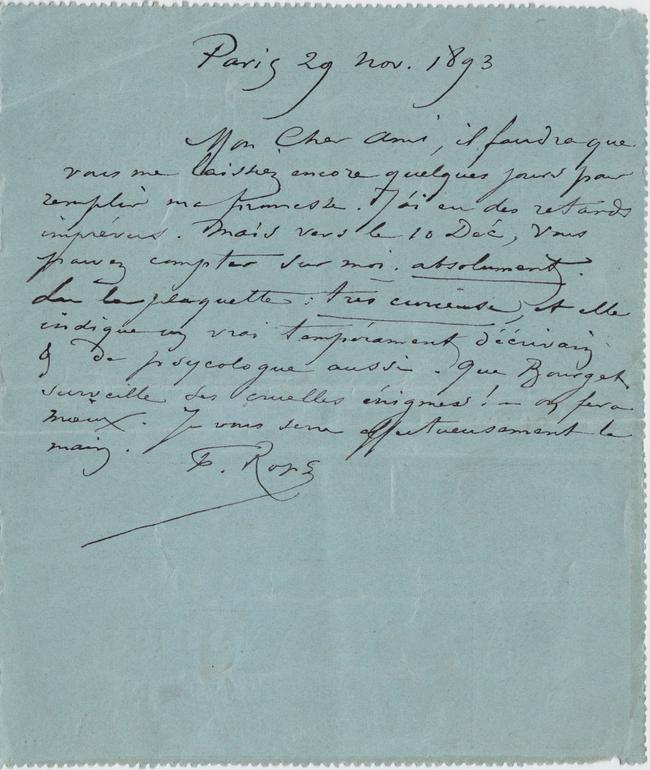 Paris 29 nov. 1893
Mon Cher Ami, il faudra que
vous me laissiez encore quelques jours pour
remplir ma promesse. J'ai eu des retards
imprévus. Mais vers le 10 Déc, vous
pouvez compter sur moi. absolument.
Lu la plaquette : très curieuse, et elle
indique un vrai tempérament d'écrivain
& de psycologue aussi. Que Bourget
surveille ses cruelles énigmes! – on fera
mieux. Je vous serre affectueusement la
main. F. Rops